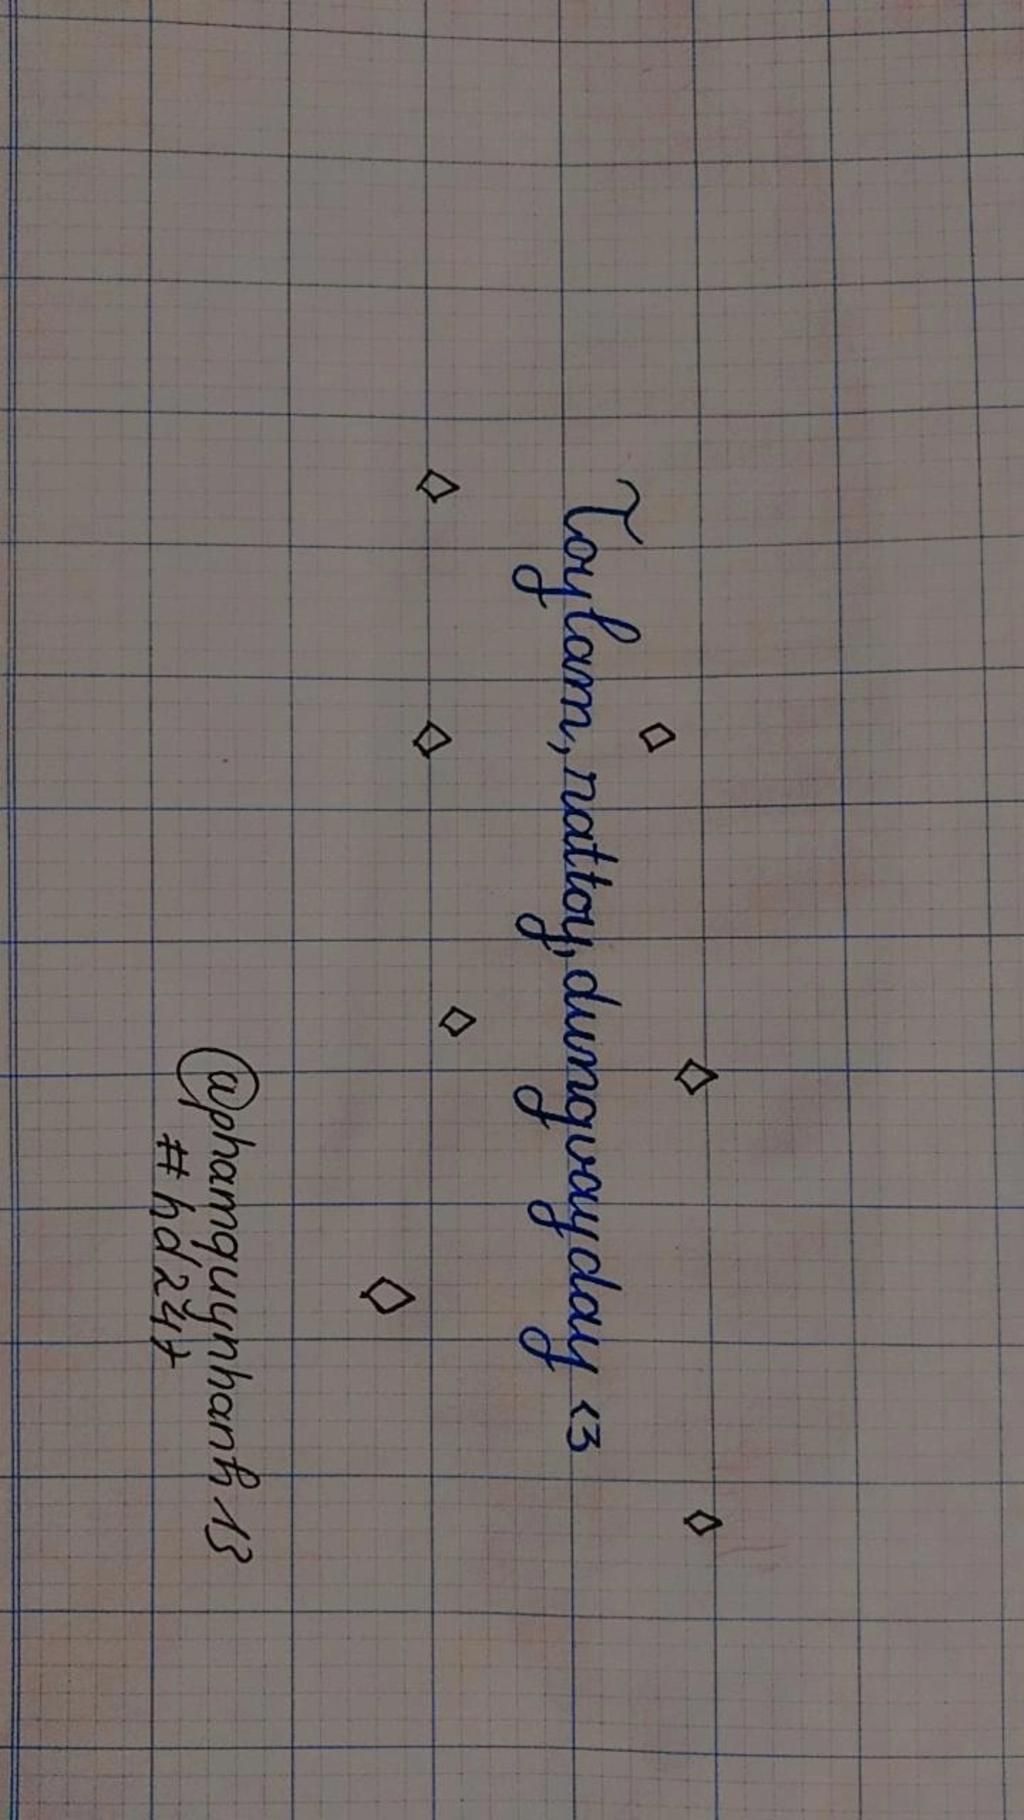 Toylam, nattoy, dungvayday <3
@phamquynhanh13
#hd24t